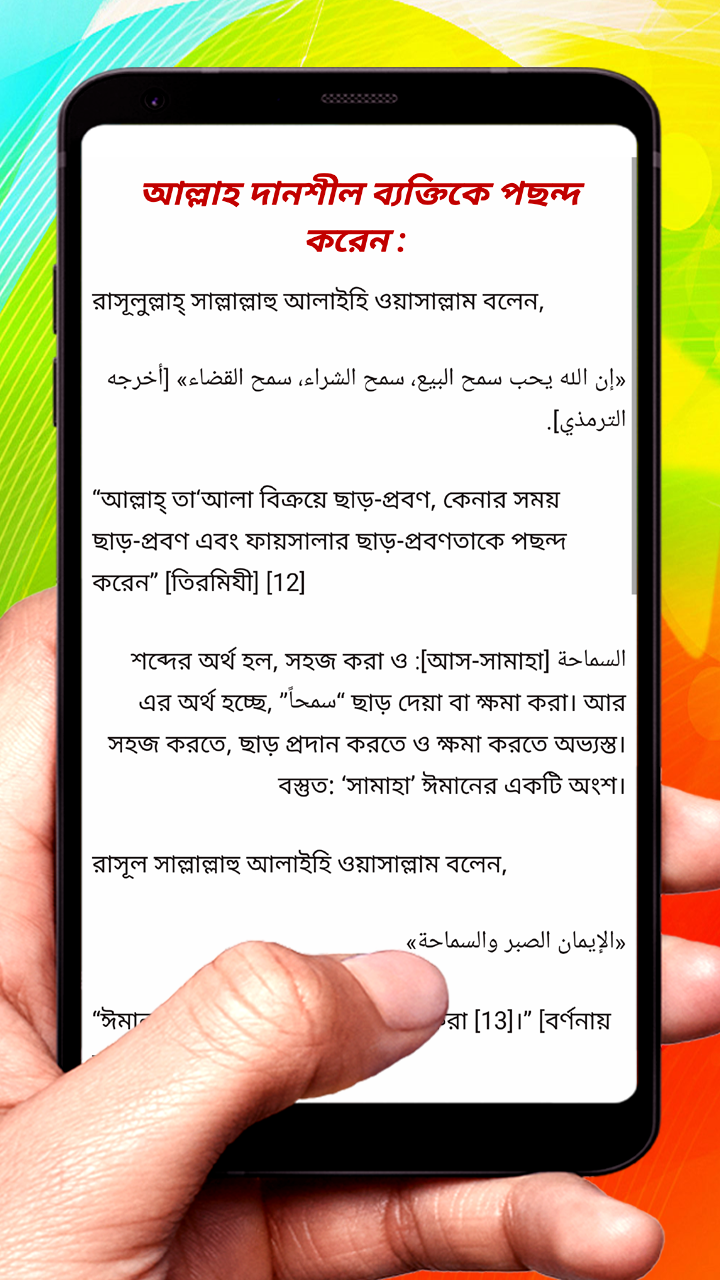 আল্লাহ দানশীল ব্যক্তিকে পছন্দ
করেন :
রাসূলুল্লাহ্ সাল্লাল্লাহু আলাইহি ওয়াসাল্লাম বলেন,
«إن الله يحب سمح البيع، سمح الشراء، سمح القضاء» [أخرجه
الترمذي].
“আল্লাহ্ তা‘আলা বিক্রয়ে ছাড়-প্রবণ, কেনার সময়
ছাড়-প্রবণ এবং ফায়সালার ছাড়-প্রবণতাকে পছন্দ
করেন” [তিরমিযী] [12]
শব্দের অর্থ হল, সহজ করা ও :[আস-সামাহা] السماحة
এর অর্থ হচ্ছে, ”سمحاً“ ছাড় দেয়া বা ক্ষমা করা। আর
সহজ করতে, ছাড় প্রদান করতে ও ক্ষমা করতে অভ্যস্ত।
বস্তুত: ‘সামাহা’ ঈমানের একটি অংশ।
রাসূল সাল্লাল্লাহু আলাইহি ওয়াসাল্লাম বলেন,
«الإيمان الصبر والسماحة»
[13]।” [বর্ণনায়